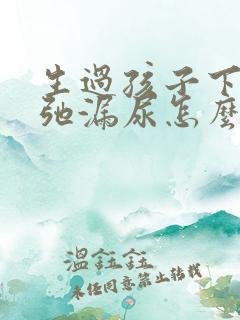 生過孩子下
弛漏尿怎麼
溫鈺鈺
未经同意禁止转载